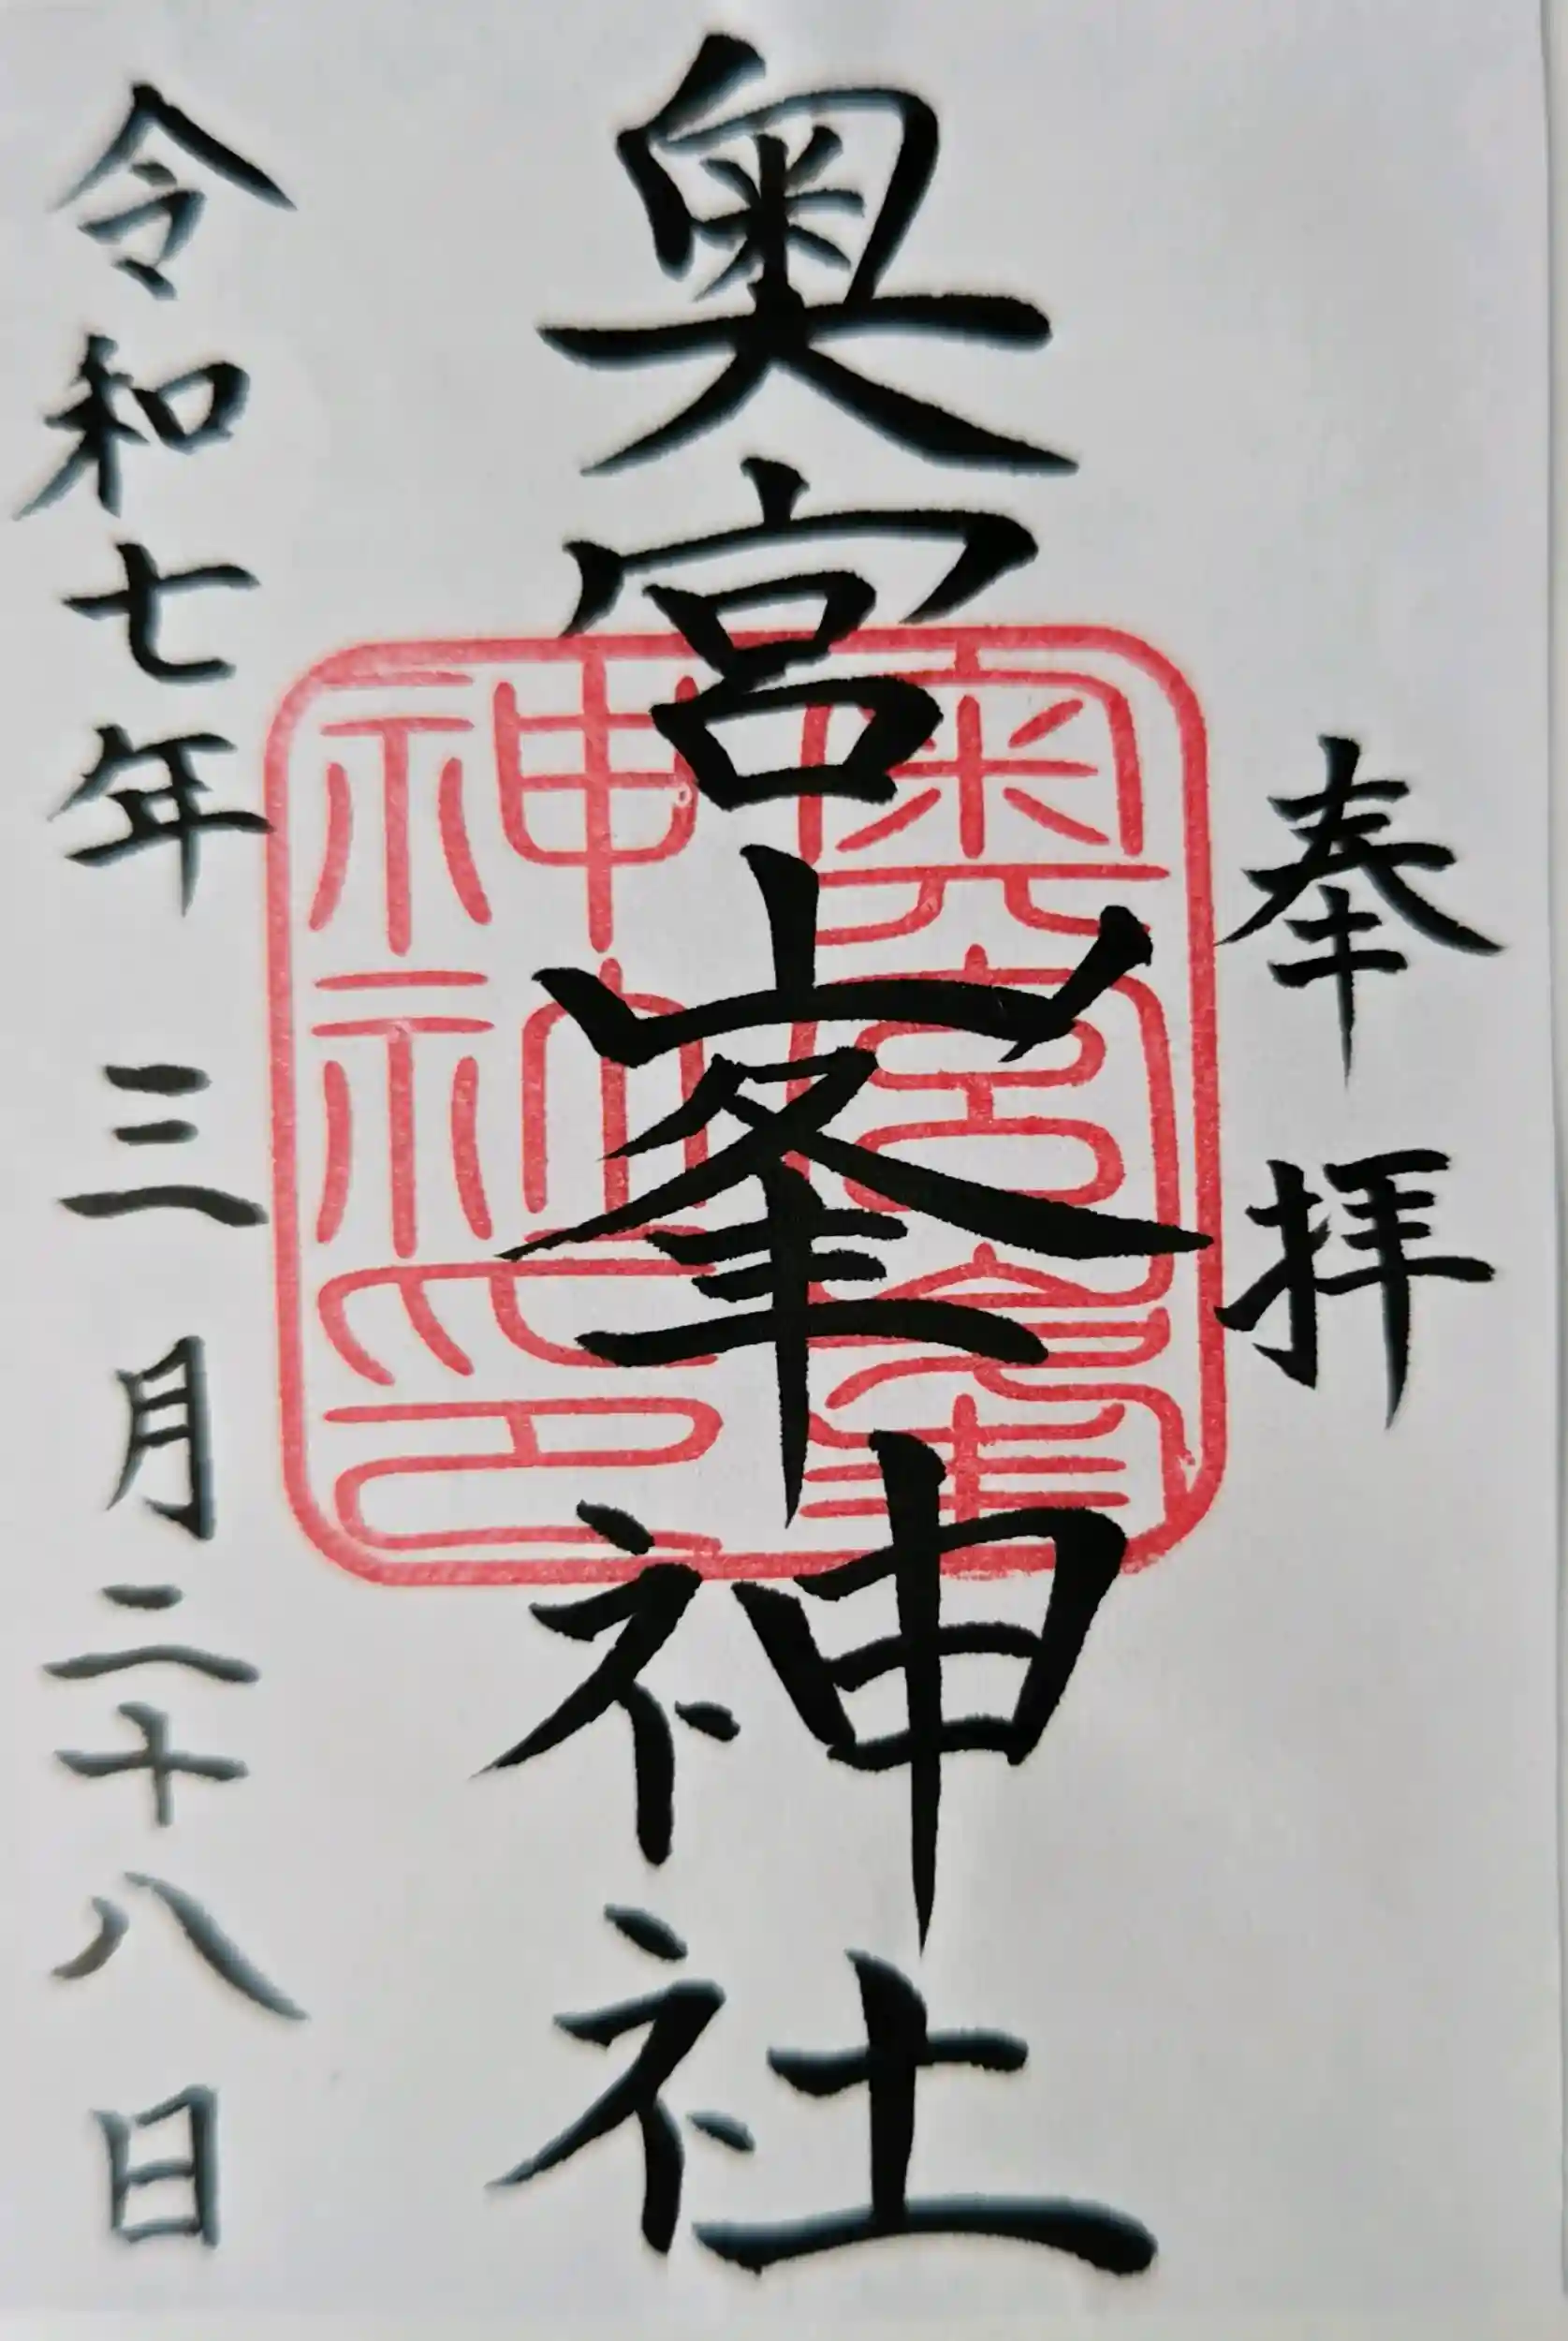 奉拝
奥宮峯神社
奥宮峯
神社印
令和七年 三月二十八日